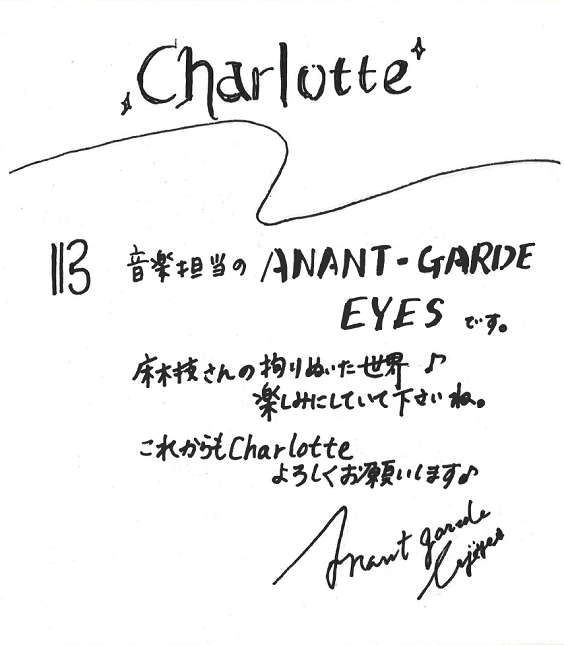 Charlotte
113 音楽担当の ANANT-GARDE
EYES です。
麻枝さんの拘りぬいた世界♪
楽しみにしていて下さいね。
これからもCharlotte
よろしくお願いします♪
Anant garde
eyes